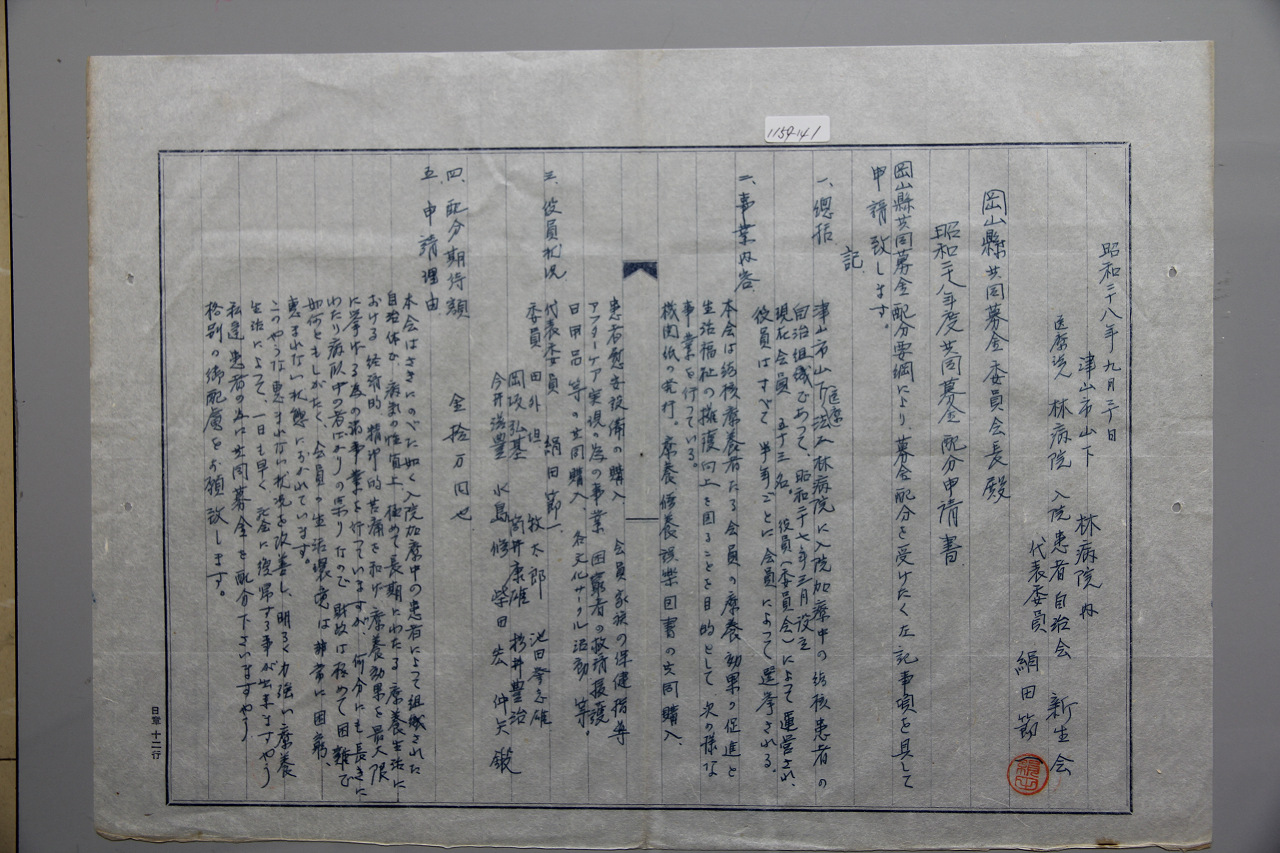 1159-141
昭和二十八年九月二十日
津山市山下 林病院内
医療法人 林病院 入院患者自治会 新生会
代表委員 絹田節一
岡山縣共同募金委員会長殿
昭和二十八年度共同募金配分申請書
岡山縣共同募金配分要綱により、募金配分を受けたく左記事項を具して
申請致します。
記
一、總括
津山市山下医療法人林病院に入院加療中の結核患者の
自治組織であって、昭和二十七年三月設立
現在会員、五十三名、役員(委員会)によって運営され、
役員はすべて半年ごとに会員によって選挙される。
二、事業内容
本会は結核療養者たる会員の療養効果の促進と
生活福祉の擁護向上を図ることを目的として次の様な
事業を行っている。
機関紙の発行。療養修養娯楽図書の共同購入、
患者慰安設備の購入、会員家族の保健指導
アフターケア実現の為の事業、困窮者の救済援護
日用品等の共同購入、各文化サークル活動 等。
三、役員状況
代表委員 絹田節一
委員 田外坦 牧太郎 池田登志雄
岡坂弘基 筒井康雄 杉井豊治
今井滋豊 水島修 柴田宏 仲矢鍛
四、配分期待額 金拾万円也
五、申請理由
本会はさきにのべた如く入院加療中の患者によって組織された
自治体か、病気の性質上、極めて長期にわたる療養生活に
おける経済的精神的苦痛を和げ、療養効果を最大限
に挙げる為の諸事業を行っていますが、何分にも長きに
わたり病臥中の者ばかりの集りなので財政は極めて困難で
如何ともしがたく、会員の生活環境は非常に困窮、
恵まれない状態におかれています。
このやうな恵まれない状況を改善し、明るく力強い療養
生活によって、一日も早く社会に復帰する事が出来ますやう
私達患者の為に共同募金を配分下さいますやう
格別の御配慮をお願致します。
日章 十二行